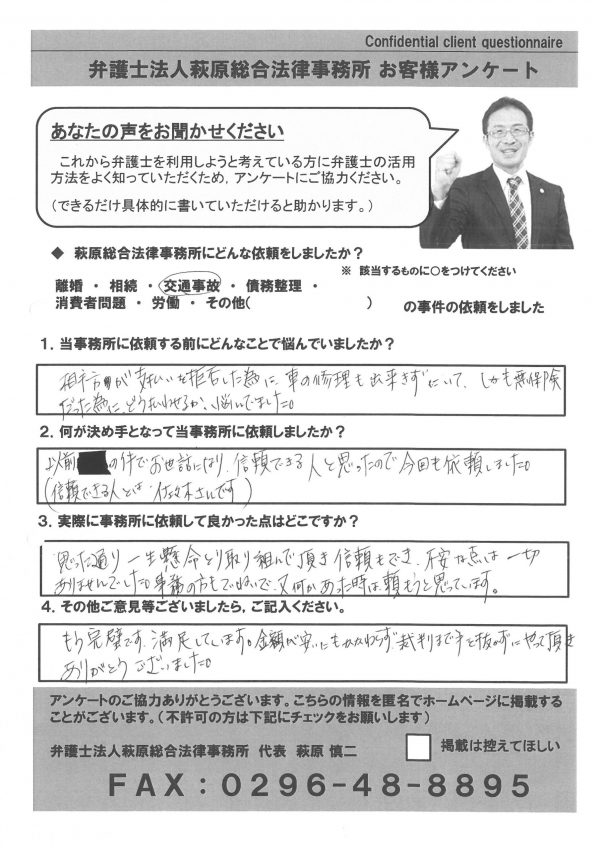 Confidential client questionnaire
弁護士法人萩原総合法律事務所 お客様アンケート
あなたの声をお聞かせください
これから弁護士を利用しようと考えている方に弁護士の活用
方法をよく知っていただくため，アンケートにご協力ください。
（できるだけ具体的に書いていただけると助かります。）
◆ 萩原総合法律事務所にどんな依頼をしましたか？
※ 該当するものに○をつけてください
離婚 ・ 相続 ・ 交通事故 ・ 債務整理 ・
消費者問題 ・ 労働 ・ その他（ ） の事件の依頼をしました
１．当事務所に依頼する前にどんなことで悩んでいましたか？
相手方が支払いを拒否した為に、車の修理も出来きずにいて、しかも無保険
だった為に、どう払わせるか、悩んでました。
２．何が決め手となって当事務所に依頼しましたか？
以前 の件でお世話になり、信頼できる人と思ったので今回も依頼しました。
（信頼できる人とは 佐々木さんです）
３．実際に事務所に依頼して良かった点はどこですか？
思った通り一生懸命とり取り組んで頂き信頼もでき、不安な点は一切
ありませんでした。事務の方もていねいで、又何かあった時は頼もうと思っています。
４．その他ご意見等ございましたら，ご記入ください。
もう完璧です。満足しています。金額が安いにもかかわらず、裁判まで手を抜かずにやって頂き
ありがとうございました。
アンケートのご協力ありがとうございます。こちらの情報を匿名でホームページに掲載する
ことがございます。（不許可の方は下記にチェックをお願いします）
弁護士法人萩原総合法律事務所 代表 萩原 慎二
掲載は控えてほしい
ＦＡＸ：０２９６－４８－８８９５